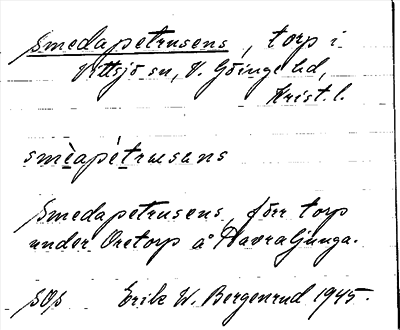 Smedapetrusens, torp i
Vittsjö sn, V. Göinge hd,
Krist. l.
smèapétrusans
Smedapetrusens, förr torp
under Oretorp å Havraljunga.
SOS Erik W. Bergenrud 1945.